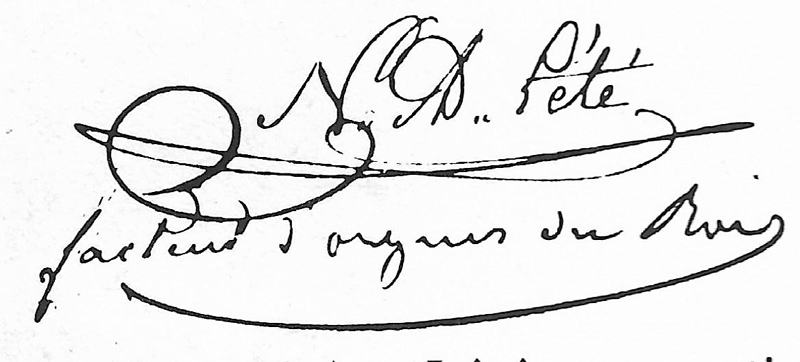 N. A. D.. Lété
facteur d'orgues du Roi